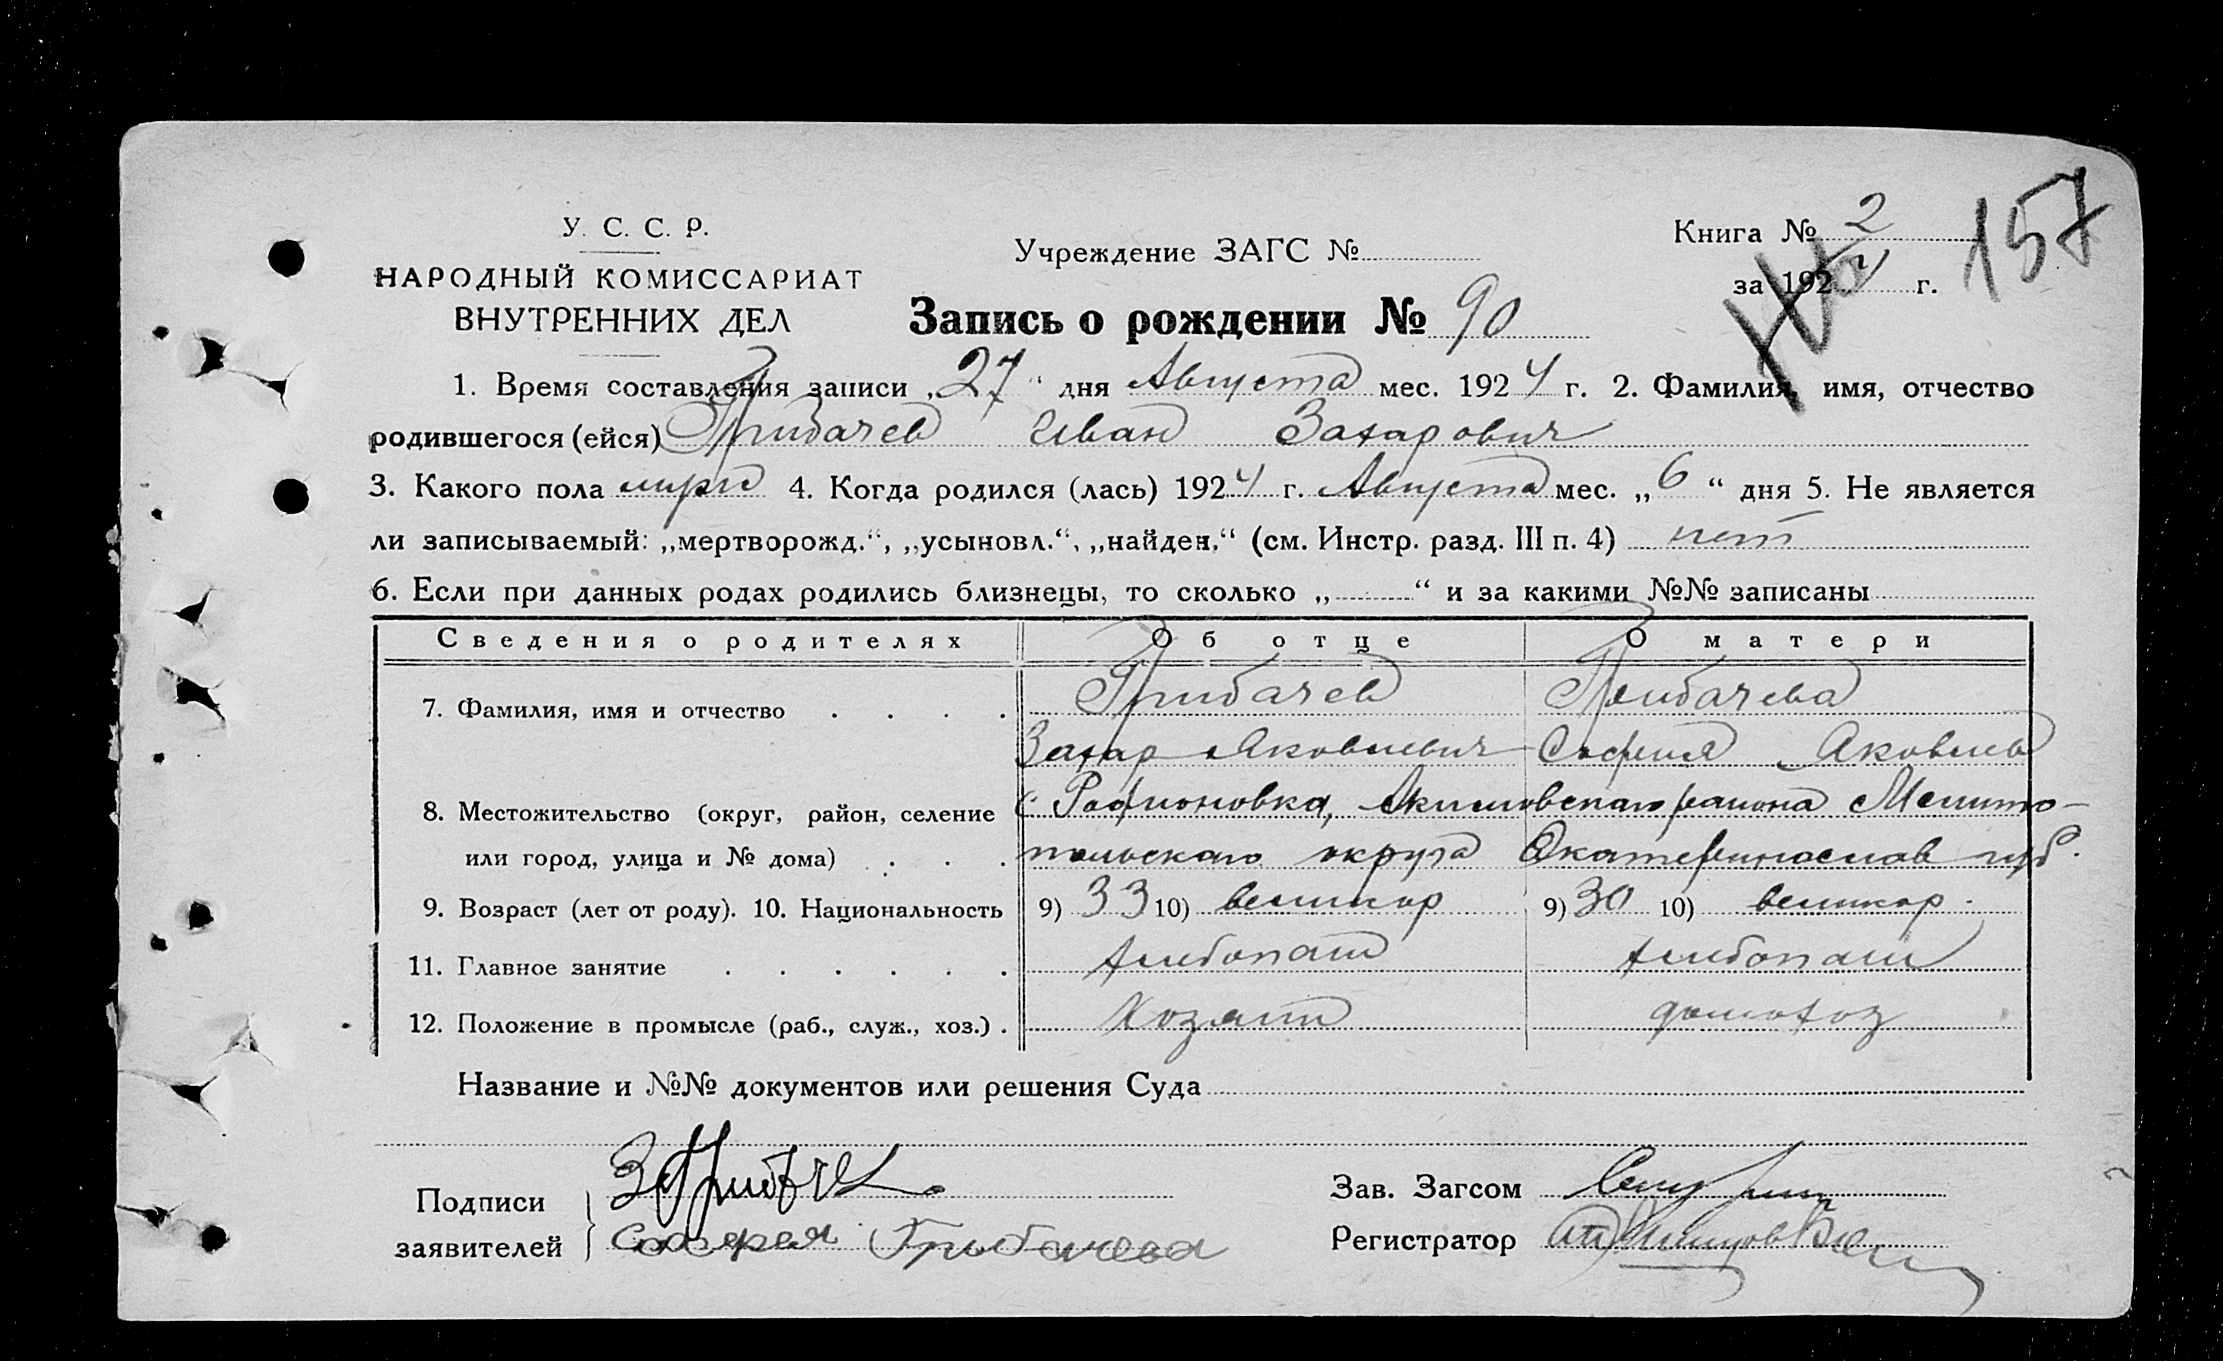 У. С. С. Р.
НАРОДНЫЙ КОМИССАРИАТ
ВНУТРЕННИХ ДЕЛ
Учреждение ЗАГС №
Книга № 2
за 1924 г.
157
Запись о рождении № 90
1. Время составления записи „27“ дня Августа мес. 1924 г. 2. Фамилия, имя, отчество
родившегося (ейся) Грибачев Иван Захарович
3. Какого пола мужс 4. Когда родился (лась) 1924 г. Августа мес. „6“ дня 5. Не является
ли записываемый: „мертворожд.“, „усыновл.“, „найден.“ (см. Инстр. разд. III п. 4) нет
6. Если при данных родах родились близнецы, то сколько „ “ и за какими №№ записаны
Сведения о родителях Об отце О матери
7. Фамилия, имя и отчество Грибачев Грибачева
Захар Яковлевич София Яковлев
8. Местожительство (округ, район, селение с. Родионовка, Акимовского района Мелито-
или город, улица и № дома) польского округа Екатеринослав губ.
9. Возраст (лет от роду). 10. Национальность 9) 33 10) великор 9) 30 10) великор.
11. Главное занятие хлебопаш хлебопаш
12. Положение в промысле (раб., служ., хоз.) Хозяин домохоз
Название и №№ документов или решения Суда
Подписи
заявителей
З Грибаче
София Грибачева
Зав. Загсом
Регистратор